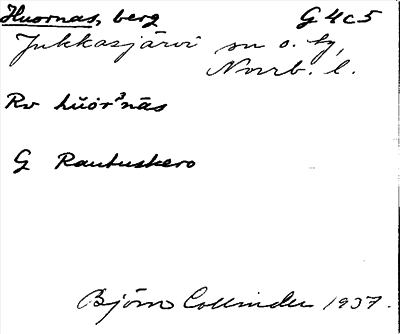 Huornas, berg G 4 c 5
Jukkasjärvi sn o. tg,
Norrb. l.
Rv hūòr³nās
G Rautuskero
Björn Collinder 1937.